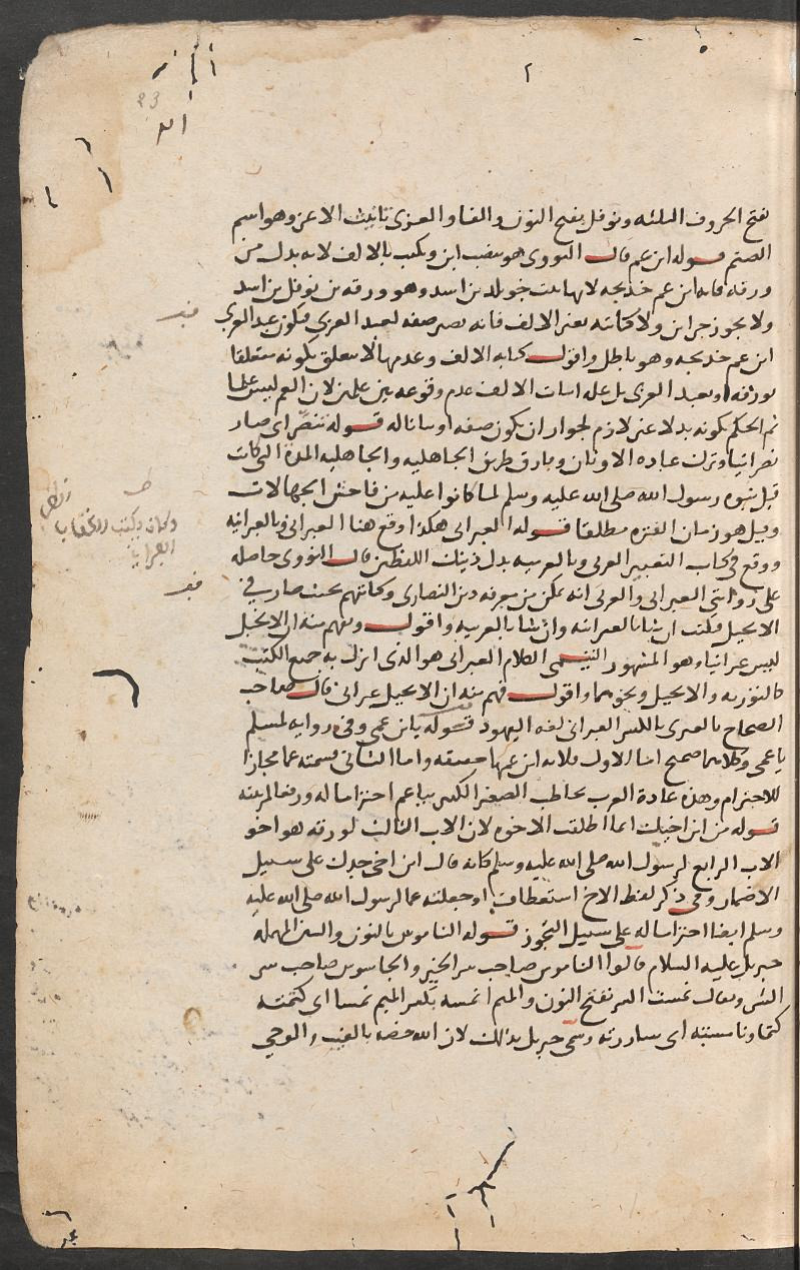 بفتح الحروف الثلثه ونوفل بفتح النون والفا والعزى تانيث الاعز وهو اسم
الصنم قوله ابن عم قال النووى هو بنصب ابن ويكتب بالالف لانه بدل من
ورقه فانه ابن عم خديجه لانها بنت خويلد بن اسد وهو ورقه بن نوفل بن اسد
ولا يجوز جر ابن ولا كتابته بغير الالف فانه يصير صفه لعبد العزى فيكون عبد العزى
ابن عم خديجه وهو باطل واقول كتابه الالف وعدمها لا يتعلق بكونه متعلقا
بورقه او بعبد العزى بل عله اثبات الالف عدم وقوعه بين علمين لان العم ليس علما
ثم الحكم بكونه بدلا غير لازم لجواز ان يكون صفه او بيانا له قوله تنصر اى صار
نصرانيا وترك عباده الاوثان وفارق طريق الجاهليه والجاهليه المدة التى كانت
قبل نبوه رسول الله صلى الله عليه وسلم لما كانوا عليه من فاحش الجهالات
وقيل هو زمان الفتره مطلقا قوله العبرانى هكذا وقع هنا العبرانى وبالعبرانيه
ووقع فى كتاب التعبير العربى وبالعربيه بدل ذينك اللفظين قال النووى حاصله
على روايتى العبرانى والعربى انه تمكن من معرفه دين النصارى وكتابتهم بحيث صار فى
الانجيل فيكتب ان شا بالعبرانيه وان شا بالعربيه واقول ويفهم منه ان الانجيل
ليس عبرانيا وهو المشهور التيمى الكلام العبرانى هو الذى انزل به جميع الكتب
كالتوريه والانجيل ونحوهما واقول فهم منه ان الانجيل عبرانى قال صاحب
الصحاح العبرى بالكسر العبرانى لغه اليهود قوله يا ابن عمى وفى روايه لمسلم
يا عمى وكلاهما صحيح اما الاول فلانه ابن عمها حقيقه واما الثانى فسمته عما مجازا
للاحترام وهذه عادة العرب يخاطب الصغير الكبير بيا عم احتراما له ورفعا لمرتبته
قوله من ابن اخيك انما اطلقت الاخوه لان الاب الثالث لورقه هو اخو
الاب الرابع لرسول الله صلى الله عليه وسلم كانه قال ابن اخى جدك على سبيل
الاضمار وفى ذكر لفظ الاخ استعطاف او جعلته عما لرسول الله صلى الله عليه
وسلم ايضا احتراما له على سبيل التجوز قوله الناموس بالنون والسين المهمله
جبريل عليه السلام قالوا الناموس صاحب سر الخير والجاسوس صاحب سر
الشر ويقال نمست السر بفتح النون والميم انمسه بكسر الميم نمسا اى كتمته
كتما ونامسته اى ساررته وسمى جبريل بذلك لان الله خصه بالغيب والوحى